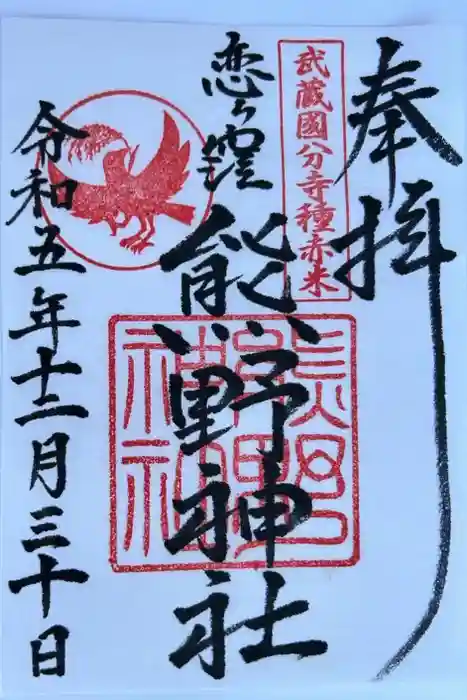 奉拝
武蔵國分寺種赤米
恋ヶ窪
熊野神社
熊野
神社
令和五年十二月三十日